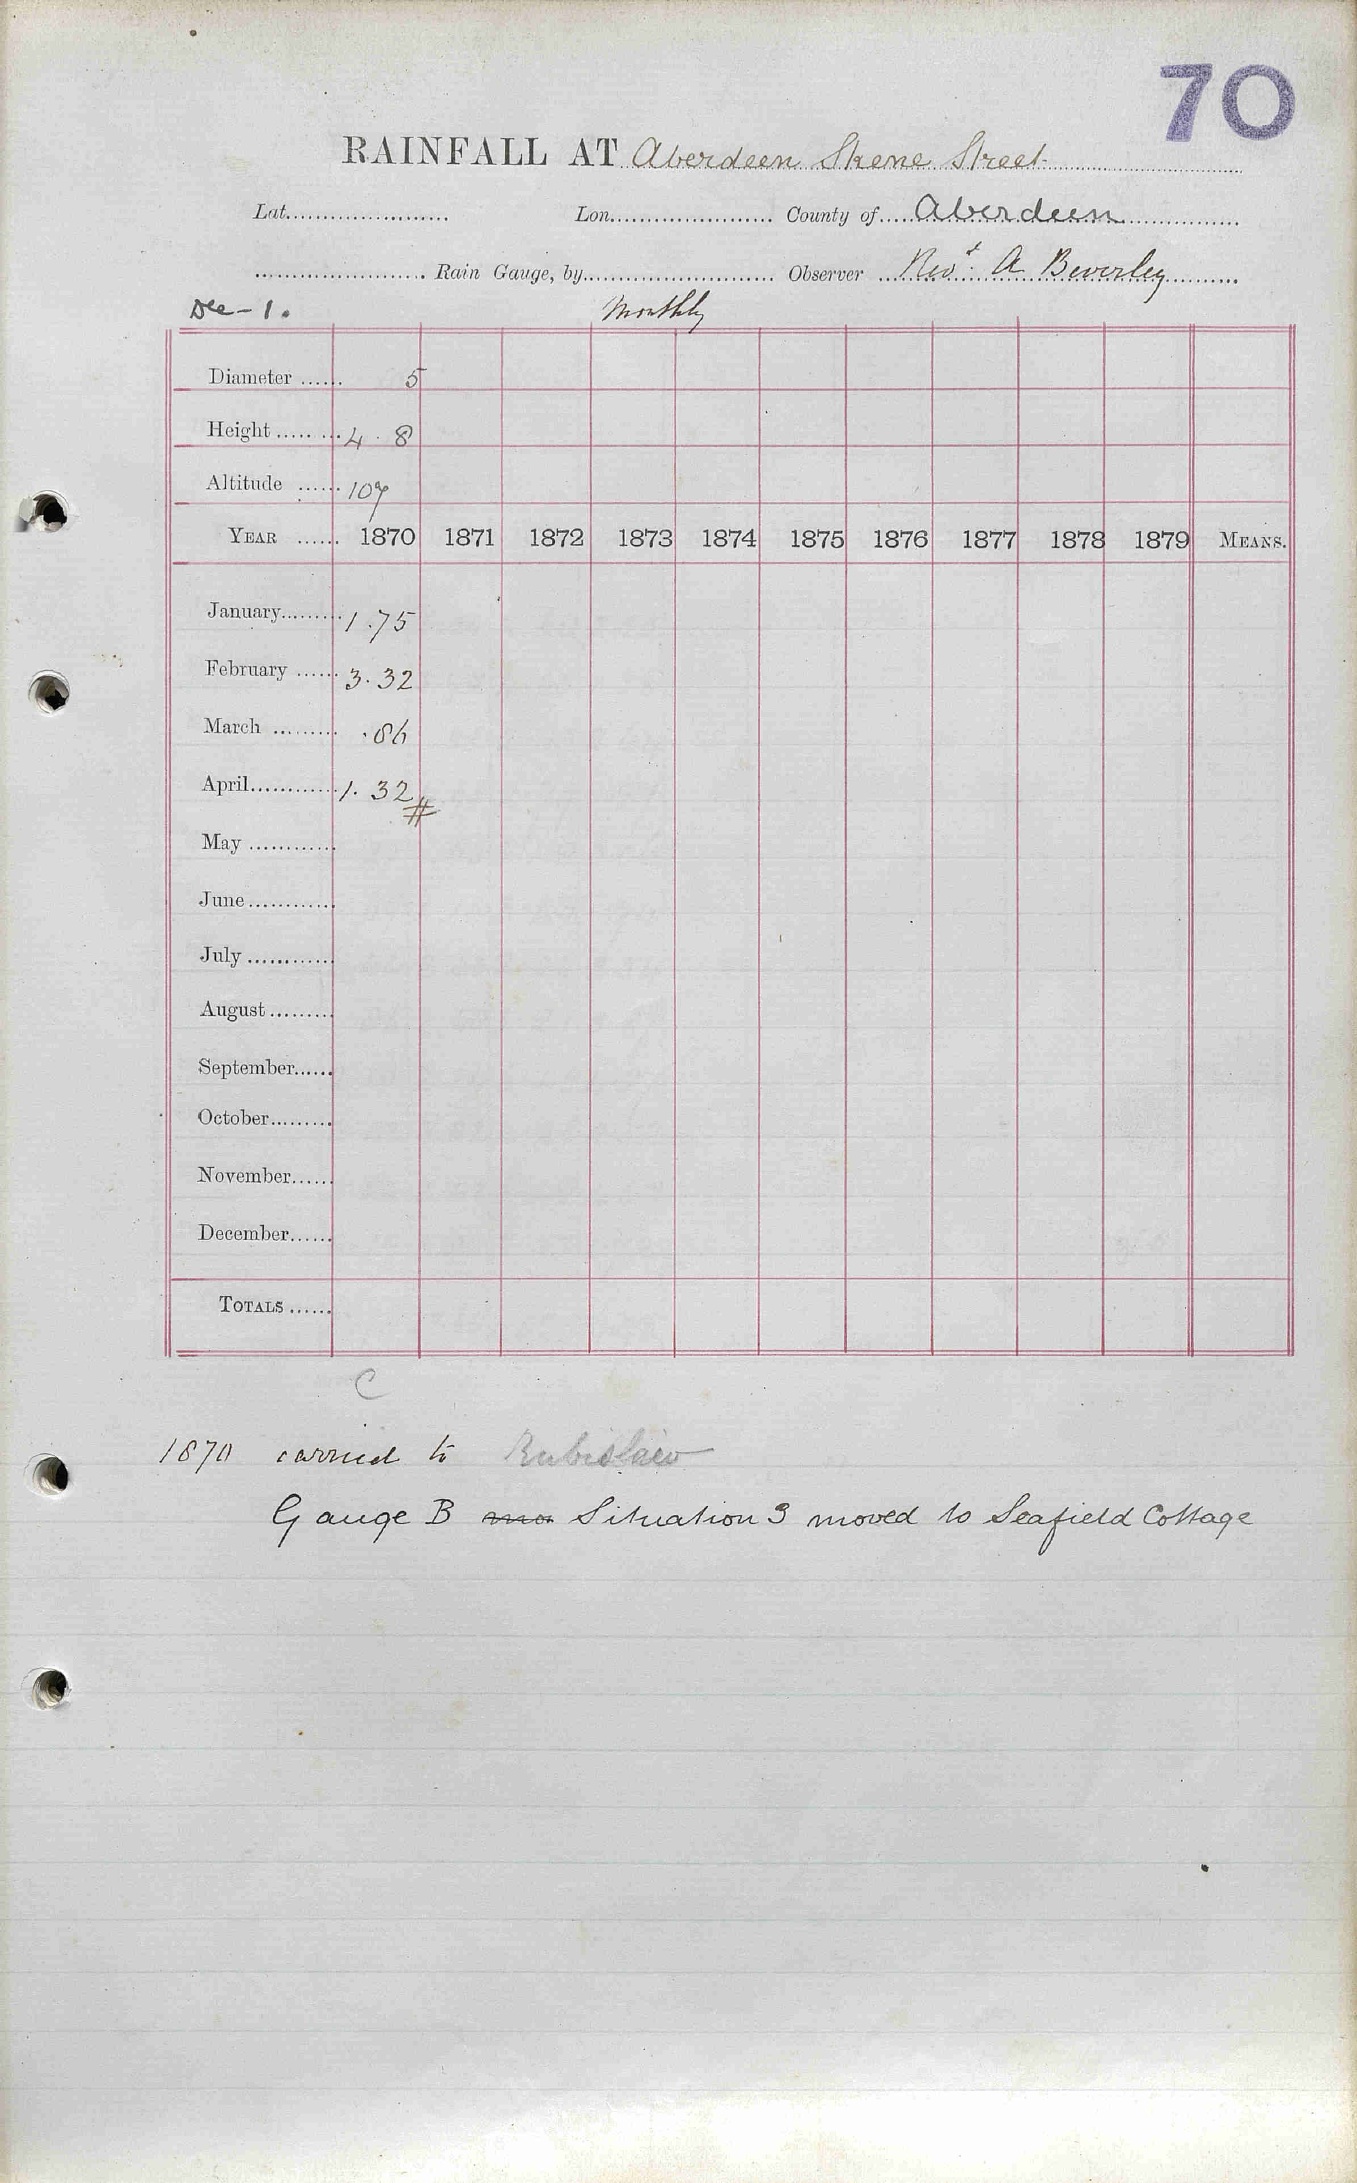 70
RAINFALL AT Aberdeen Skene Street
Lat...................... Lon...................... County of.... Aberdeen
....................... Rain Gauge, by.......................... Observer ... Revd. A Beverley
Dee - 1. Monthly
Diameter ...... 5
Height ........ 4 . 8
Altitude ...... 107
YEAR ...... 1870 1871 1872 1873 1874 1875 1876 1877 1878 1879 MEANS.
January......... 1.75
February ...... 3.32
March ......... .86
April............ 1.32 #
May ............
June............
July ............
August.........
September......
October.........
November......
December......
TOTALS ......
C
1870 carried to Rubislaw
Gauge B Situation 3 moved to Seafield Cottage